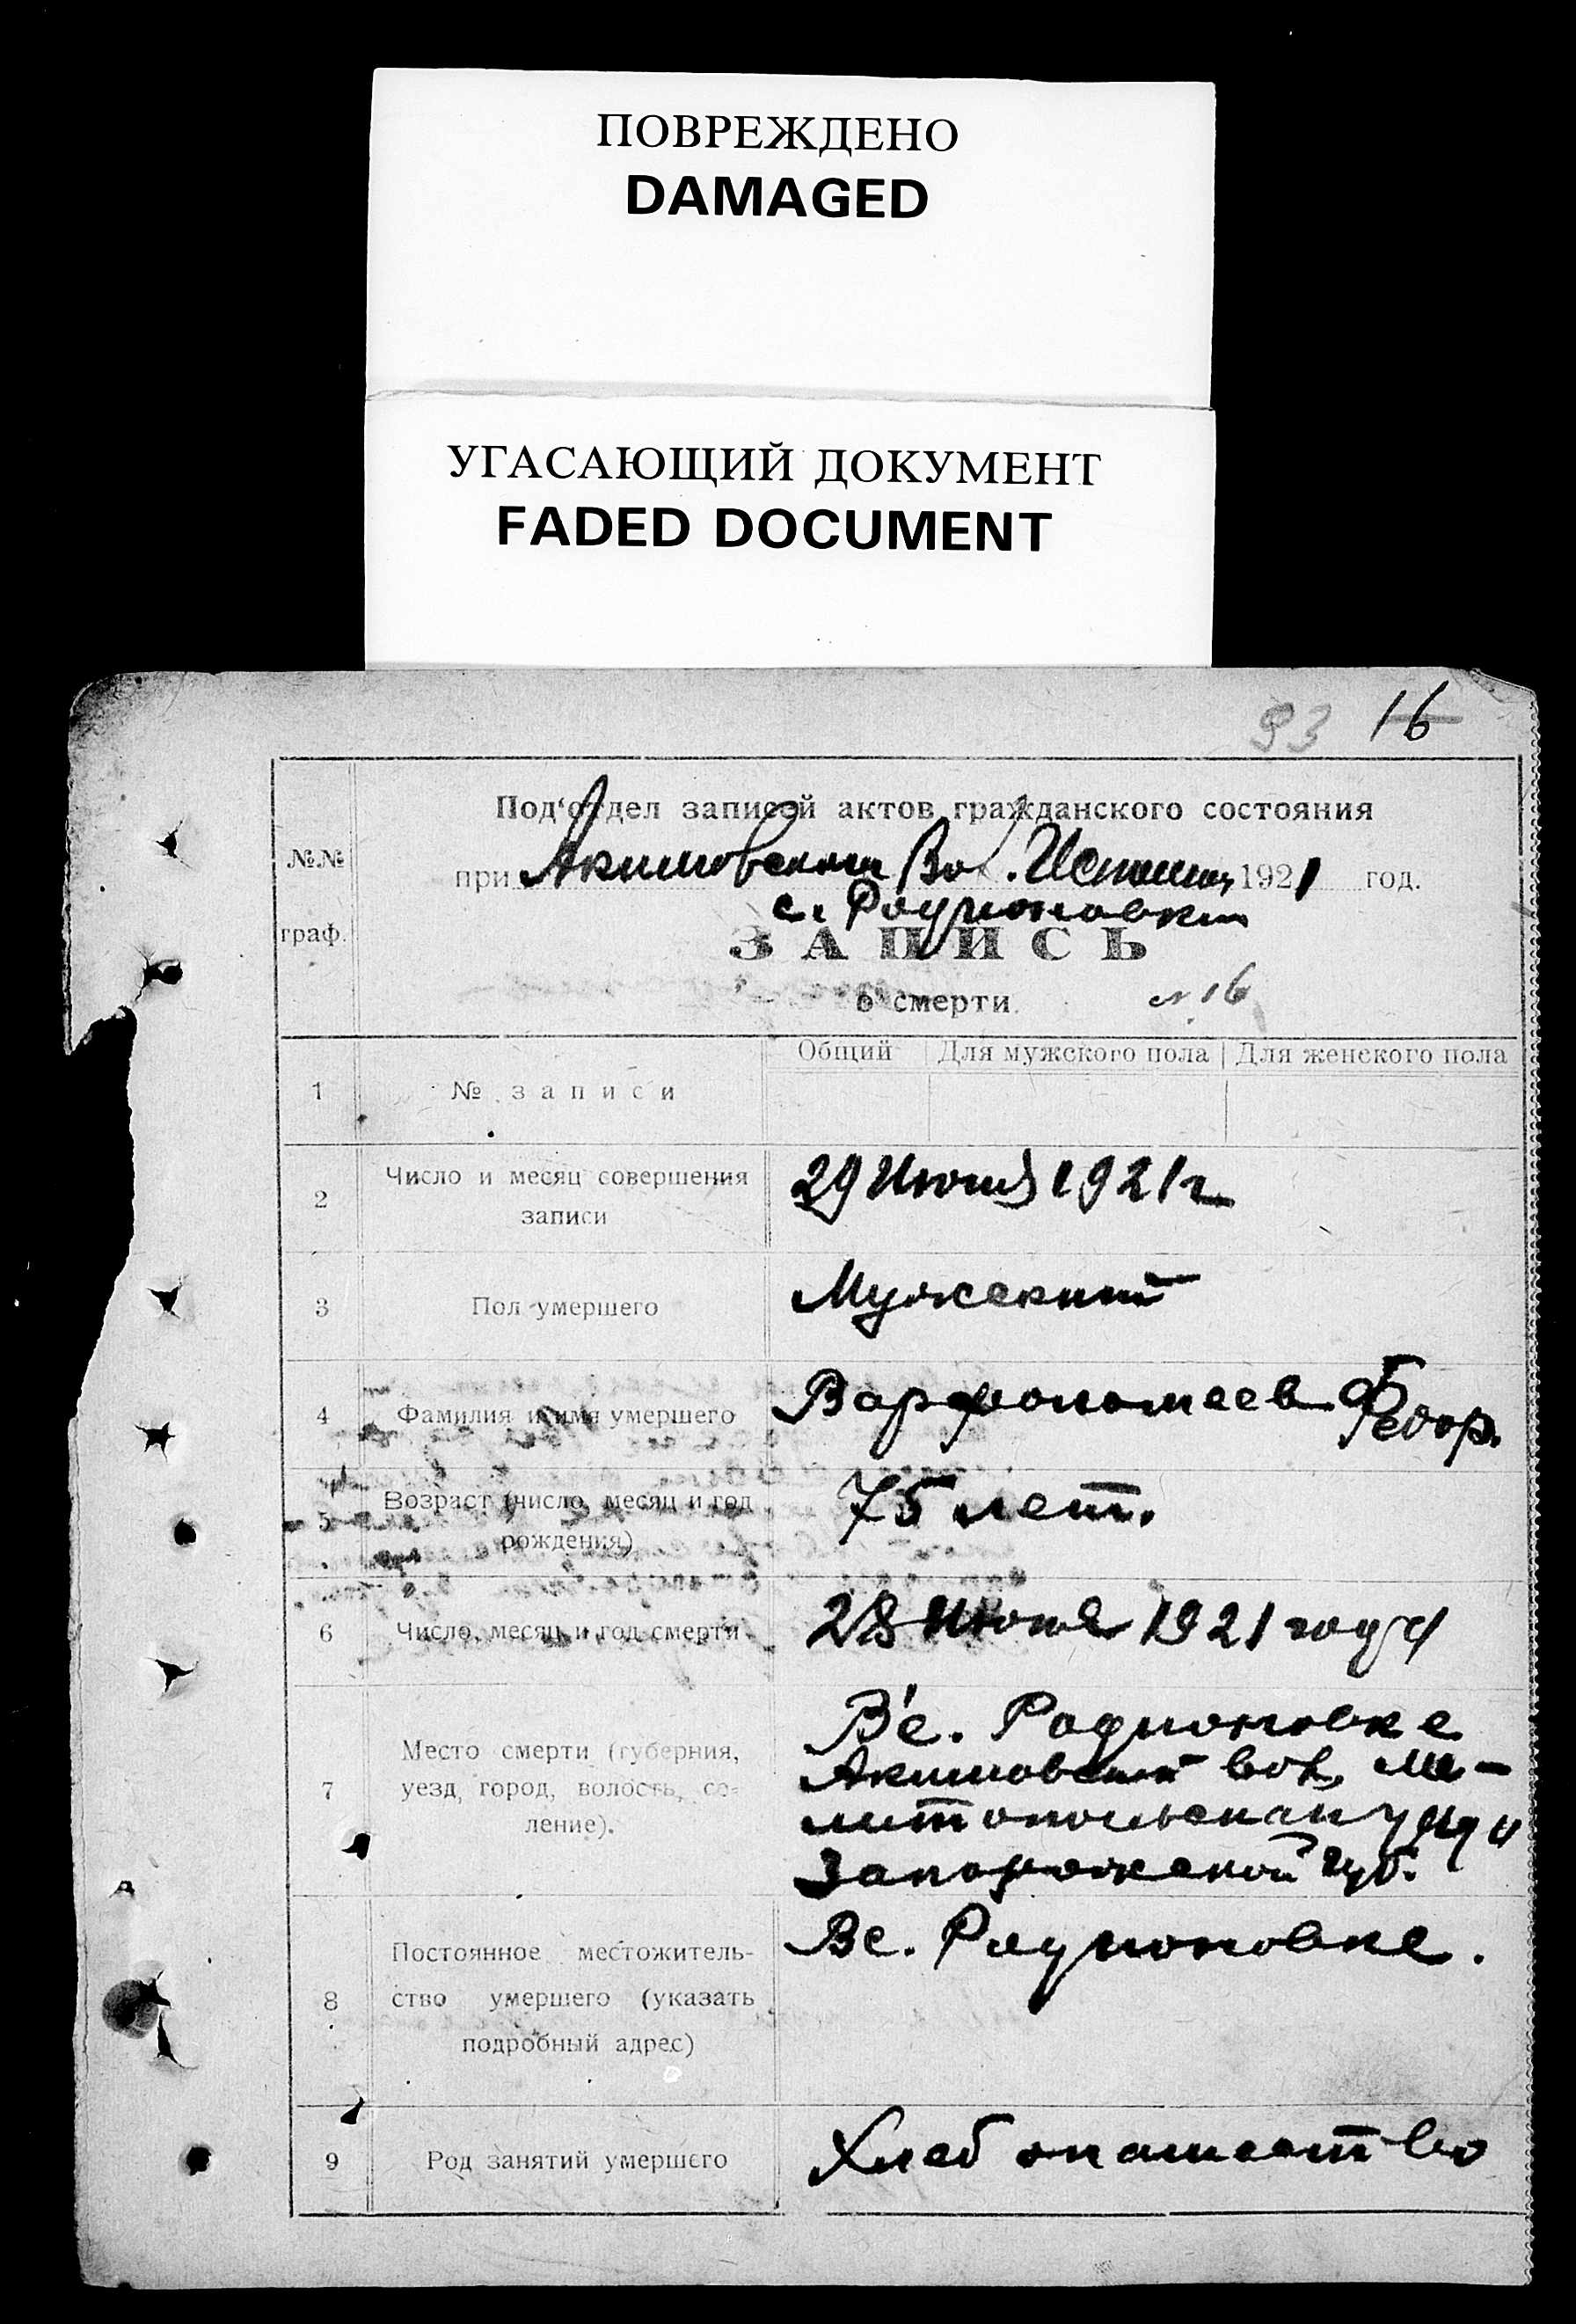 ПОВРЕЖДЕНО
DAMAGED
УГАСАЮЩИЙ ДОКУМЕНТ
FADED DOCUMENT
93 16
Под'отдел записей актов гражданского состояния
№№ граф.
при Акимовском Вол. 1921 год.
с. Родионовки
ЗАПИСЬ
о смерти. № 16
Общий Для мужского пола Для женского пола
1 № записи
2 Число и месяц совершения
записи
29 Июня 1921 г.
3 Пол умершего Мужский
4 Фамилия и имя умершего Варфоломеев Федор.
5 Возраст (число, месяц и год
рождения)
75 лет.
6 Число, месяц и год смерти 28 Июня 1921 году
7 Место смерти (губерния,
уезд, город, волость, се-
ление).
В с. Родионовке
Акимовской вол, Ме-
литопольскаи уезда
Запорожской губ.
8 Постоянное местожитель-
ство умершего (указать
подробный адрес)
В с. Родионовке.
9 Род занятий умершего Хлебопашество